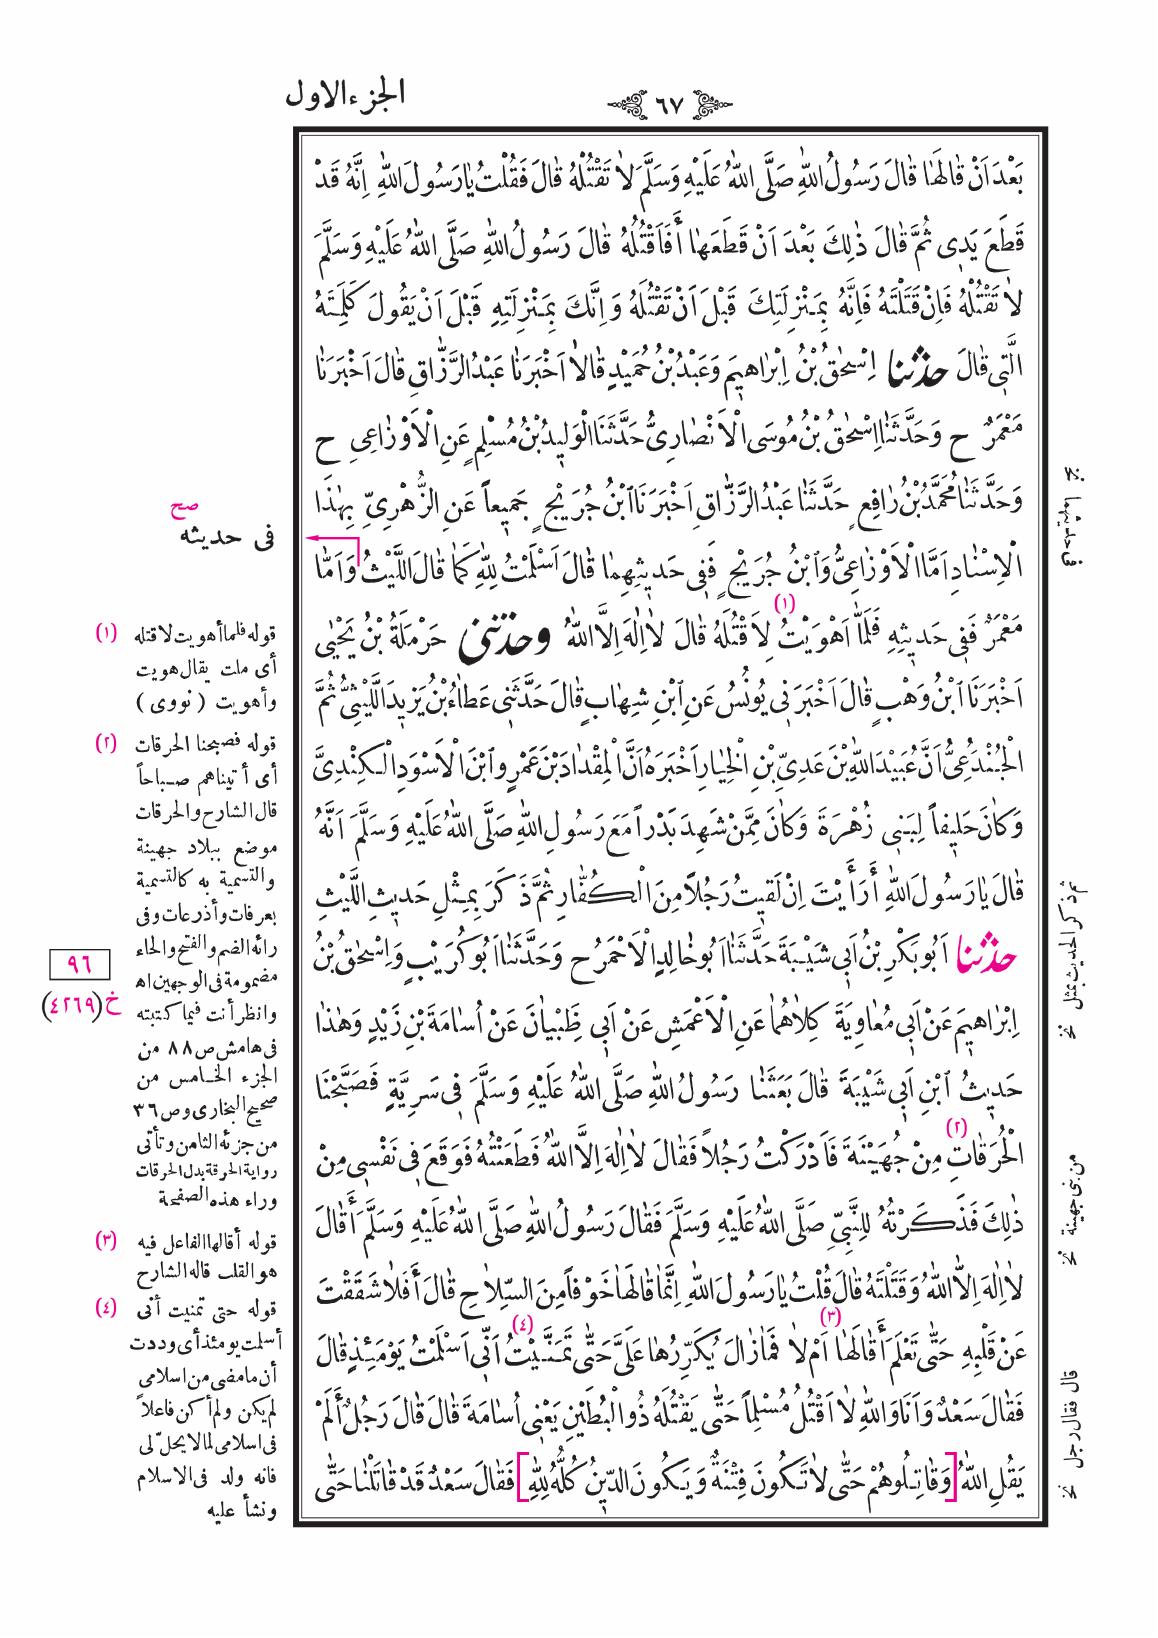 الجزء الاول
٦٧
بَعْدَ اَنْ قَالَهَا قَالَ رَسُولُ اللهِ صَلَّى اللهُ عَلَيْهِ وَسَلَّمَ لَا تَقْتُلْهُ قَالَ فَقُلْتُ يَا رَسُولَ اللهِ اِنَّهُ قَدْ
قَطَعَ يَدِى ثُمَّ قَالَ ذٰلِكَ بَعْدَ اَنْ قَطَعَهَا أَفَأَقْتُلُهُ قَالَ رَسُولُ اللهِ صَلَّى اللهُ عَلَيْهِ وَسَلَّمَ
لَا تَقْتُلْهُ فَاِنْ قَتَلْتَهُ فَاِنَّهُ بِمَنْزِلَتِكَ قَبْلَ اَنْ تَقْتُلَهُ وَاِنَّكَ بِمَنْزِلَتِهِ قَبْلَ اَنْ يَقُولَ كَلِمَتَهُ
الَّتِى قَالَ حدثنا اِسْحٰقُ بْنُ اِبْرَاهِيمَ وَعَبْدُ بْنُ حُمَيْدٍ قَالَا اَخْبَرَنَا عَبْدُ الرَّزَّاقِ قَالَ اَخْبَرَنَا
مَعْمَرٌ ح وَحَدَّثَنَا اِسْحٰقُ بْنُ مُوسَى الْاَنْصَارِىُّ حَدَّثَنَا الْوَلِيدُ بْنُ مُسْلِمٍ عَنِ الْاَوْزَاعِىِ ح
وَحَدَّثَنَا مُحَمَّدُ بْنُ رَافِعٍ حَدَّثَنَا عَبْدُ الرَّزَّاقِ اَخْبَرَنَا ابْنُ جُرَيْجٍ جَمِيعاً عَنِ الزُّهْرِىِّ بِهٰذَا
الْاِسْنَادِ اَمَّا الْاَوْزَاعِىُّ وَابْنُ جُرَيْجٍ فَفِى حَدِيثِهِمَا قَالَ اَسْلَمْتُ لِلّٰهِ كَمَا قَالَ اللَّيْثُ وَاَمَّا
مَعْمَرٌ فَفِى حَدِيثِهِ فَلَمَّا اَهْوَيْتُ (١) لِاَقْتُلَهُ قَالَ لَا اِلٰهَ اِلَّا اللهُ وحدثنى حَرْمَلَةُ بْنُ يَحْيٰى
اَخْبَرَنَا ابْنُ وَهْبٍ قَالَ اَخْبَرَنِى يُونُسُ عَنِ ابْنِ شِهَابٍ قَالَ حَدَّثَنِى عَطَاءُ بْنُ يَزِيدَ اللَّيْثِىُّ ثُمَّ
الْجُنْدَعِىُّ اَنَّ عُبَيْدَ اللهِ بْنَ عَدِىِّ بْنِ الْخِيَارِ اَخْبَرَهُ اَنَّ الْمِقْدَادَ بْنَ عَمْرٍو ابْنَ الْاَسْوَدِ الْكِنْدِىَّ
وَكَانَ حَلِيفاً لِبَنِى زُهْرَةَ وَكَانَ مِمَّنْ شَهِدَ بَدْراً مَعَ رَسُولِ اللهِ صَلَّى اللهُ عَلَيْهِ وَسَلَّمَ اَنَّهُ
قَالَ يَا رَسُولَ اللهِ أَرَأَيْتَ اِنْ لَقِيتُ رَجُلًا مِنَ الْكُفَّارِ ثُمَّ ذَكَرَ بِمِثْلِ حَدِيثِ اللَّيْثِ
حدثنا اَبُو بَكْرِ بْنُ اَبِى شَيْبَةَ حَدَّثَنَا اَبُو خَالِدٍ الْاَحْمَرُ ح وَحَدَّثَنَا اَبُو كُرَيْبٍ وَاِسْحٰقُ بْنُ
اِبْرَاهِيمَ عَنْ اَبِى مُعَاوِيَةَ كِلَاهُمَا عَنِ الْاَعْمَشِ عَنْ اَبِى ظِبْيَانَ عَنْ اُسَامَةَ بْنِ زَيْدٍ وَهٰذَا
حَدِيثُ ابْنِ اَبِى شَيْبَةَ قَالَ بَعَثَنَا رَسُولُ اللهِ صَلَّى اللهُ عَلَيْهِ وَسَلَّمَ فِى سَرِيَّةٍ فَصَبَّحْنَا
الْحُرَقَاتِ (٢) مِنْ جُهَيْنَةَ فَاَدْرَكْتُ رَجُلًا فَقَالَ لَا اِلٰهَ اِلَّا اللهُ فَطَعَنْتُهُ فَوَقَعَ فِى نَفْسِى مِنْ
ذٰلِكَ فَذَكَرْتُهُ لِلنَّبِىِّ صَلَّى اللهُ عَلَيْهِ وَسَلَّمَ فَقَالَ رَسُولُ اللهِ صَلَّى اللهُ عَلَيْهِ وَسَلَّمَ أَقَالَ
لَا اِلٰهَ اِلَّا اللهُ وَقَتَلْتَهُ قَالَ قُلْتُ يَا رَسُولَ اللهِ اِنَّمَا قَالَهَا خَوْفاً مِنَ السِّلَاحِ قَالَ أَفَلَا شَقَقْتَ
عَنْ قَلْبِهِ حَتّٰى تَعْلَمَ أَقَالَهَا (٣) اَمْ لَا فَمَا زَالَ يُكَرِّرُهَا عَلَىَّ حَتّٰى تَمَنَّيْتُ (٤) اَنِّى اَسْلَمْتُ يَوْمَئِذٍ قَالَ
فَقَالَ سَعْدٌ وَاَنَا وَاللهِ لَا اَقْتُلُ مُسْلِماً حَتّٰى يَقْتُلَهُ ذُو الْبُطَيْنِ يَعْنِى اُسَامَةَ قَالَ قَالَ رَجُلٌ أَلَمْ
يَقُلِ اللهُ [وَقَاتِلُوهُمْ حَتّٰى لَا تَكُونَ فِتْنَةٌ وَيَكُونَ الدِّينُ كُلُّهُ لِلّٰهِ] فَقَالَ سَعْدٌ قَدْ قَاتَلْنَا حَتّٰى
صح
فى حديثه
(١) قوله فلما أهويت لاقتله
أى ملت يقال هويت
وأهويت (نووى)
(٢) قوله فصبحنا الحرقات
أى أتيناهم صباحاً
قال الشارح والحرقات
موضع ببلاد جهينة
والتسمية به كالتسمية
بعرفات وأذرعات وفى
رائه الضم والفتح والحاء
مضمومة فى الوجهين اه
وانظر أنت فيما كتبته
فى هامش ص ٨٨ من
الجزء الخامس من
صحيح البخارى وص ٣٦
من جزئه الثامن وتأتى
رواية الحرقة بدل الحرقات
وراء هذه الصفحة
(٣) قوله أقالها الفاعل فيه
هو القلب قاله الشارح
(٤) قوله حتى تمنيت أنى
أسلمت يومئذ أى وددت
أن ما مضى من اسلامى
لم يكن ولم أكن فاعلاً
فى اسلامى لما لا يحلّ لى
فانه ولد فى الاسلام
ونشأ عليه
٩٦
خ (٤٢٦٩)
فى حديثهما نخ
ثم ذكر الحديث بمثل نخ
من بنى جهينة نخ
قال فقال رجل نخ